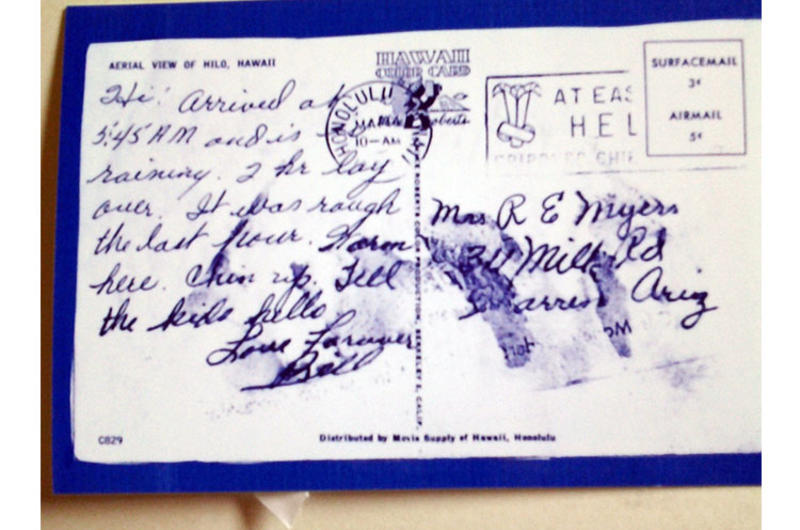 AERIAL VIEW OF HILO, HAWAII
HAWAII
COLOR CARD
SURFACEMAIL
3¢
AIRMAIL
5¢
HONOLULU
MAR
10-AM
Roberts
AT EAS
HEL
CRIPPLED CHI
Hi! Arrived at
5:45 AM and is
raining. 2 hr lay
over. It was rough
the last hour. Warm
here. Chin up. Tell
the kids hello
Love Forever
Bill
Mrs R E Myers
Mill Rd
Ariz
ROBERTS COLOR PRODUCTION, BERKELEY 2, CALIF.
C829
Distributed by Movie Supply of Hawaii, Honolulu